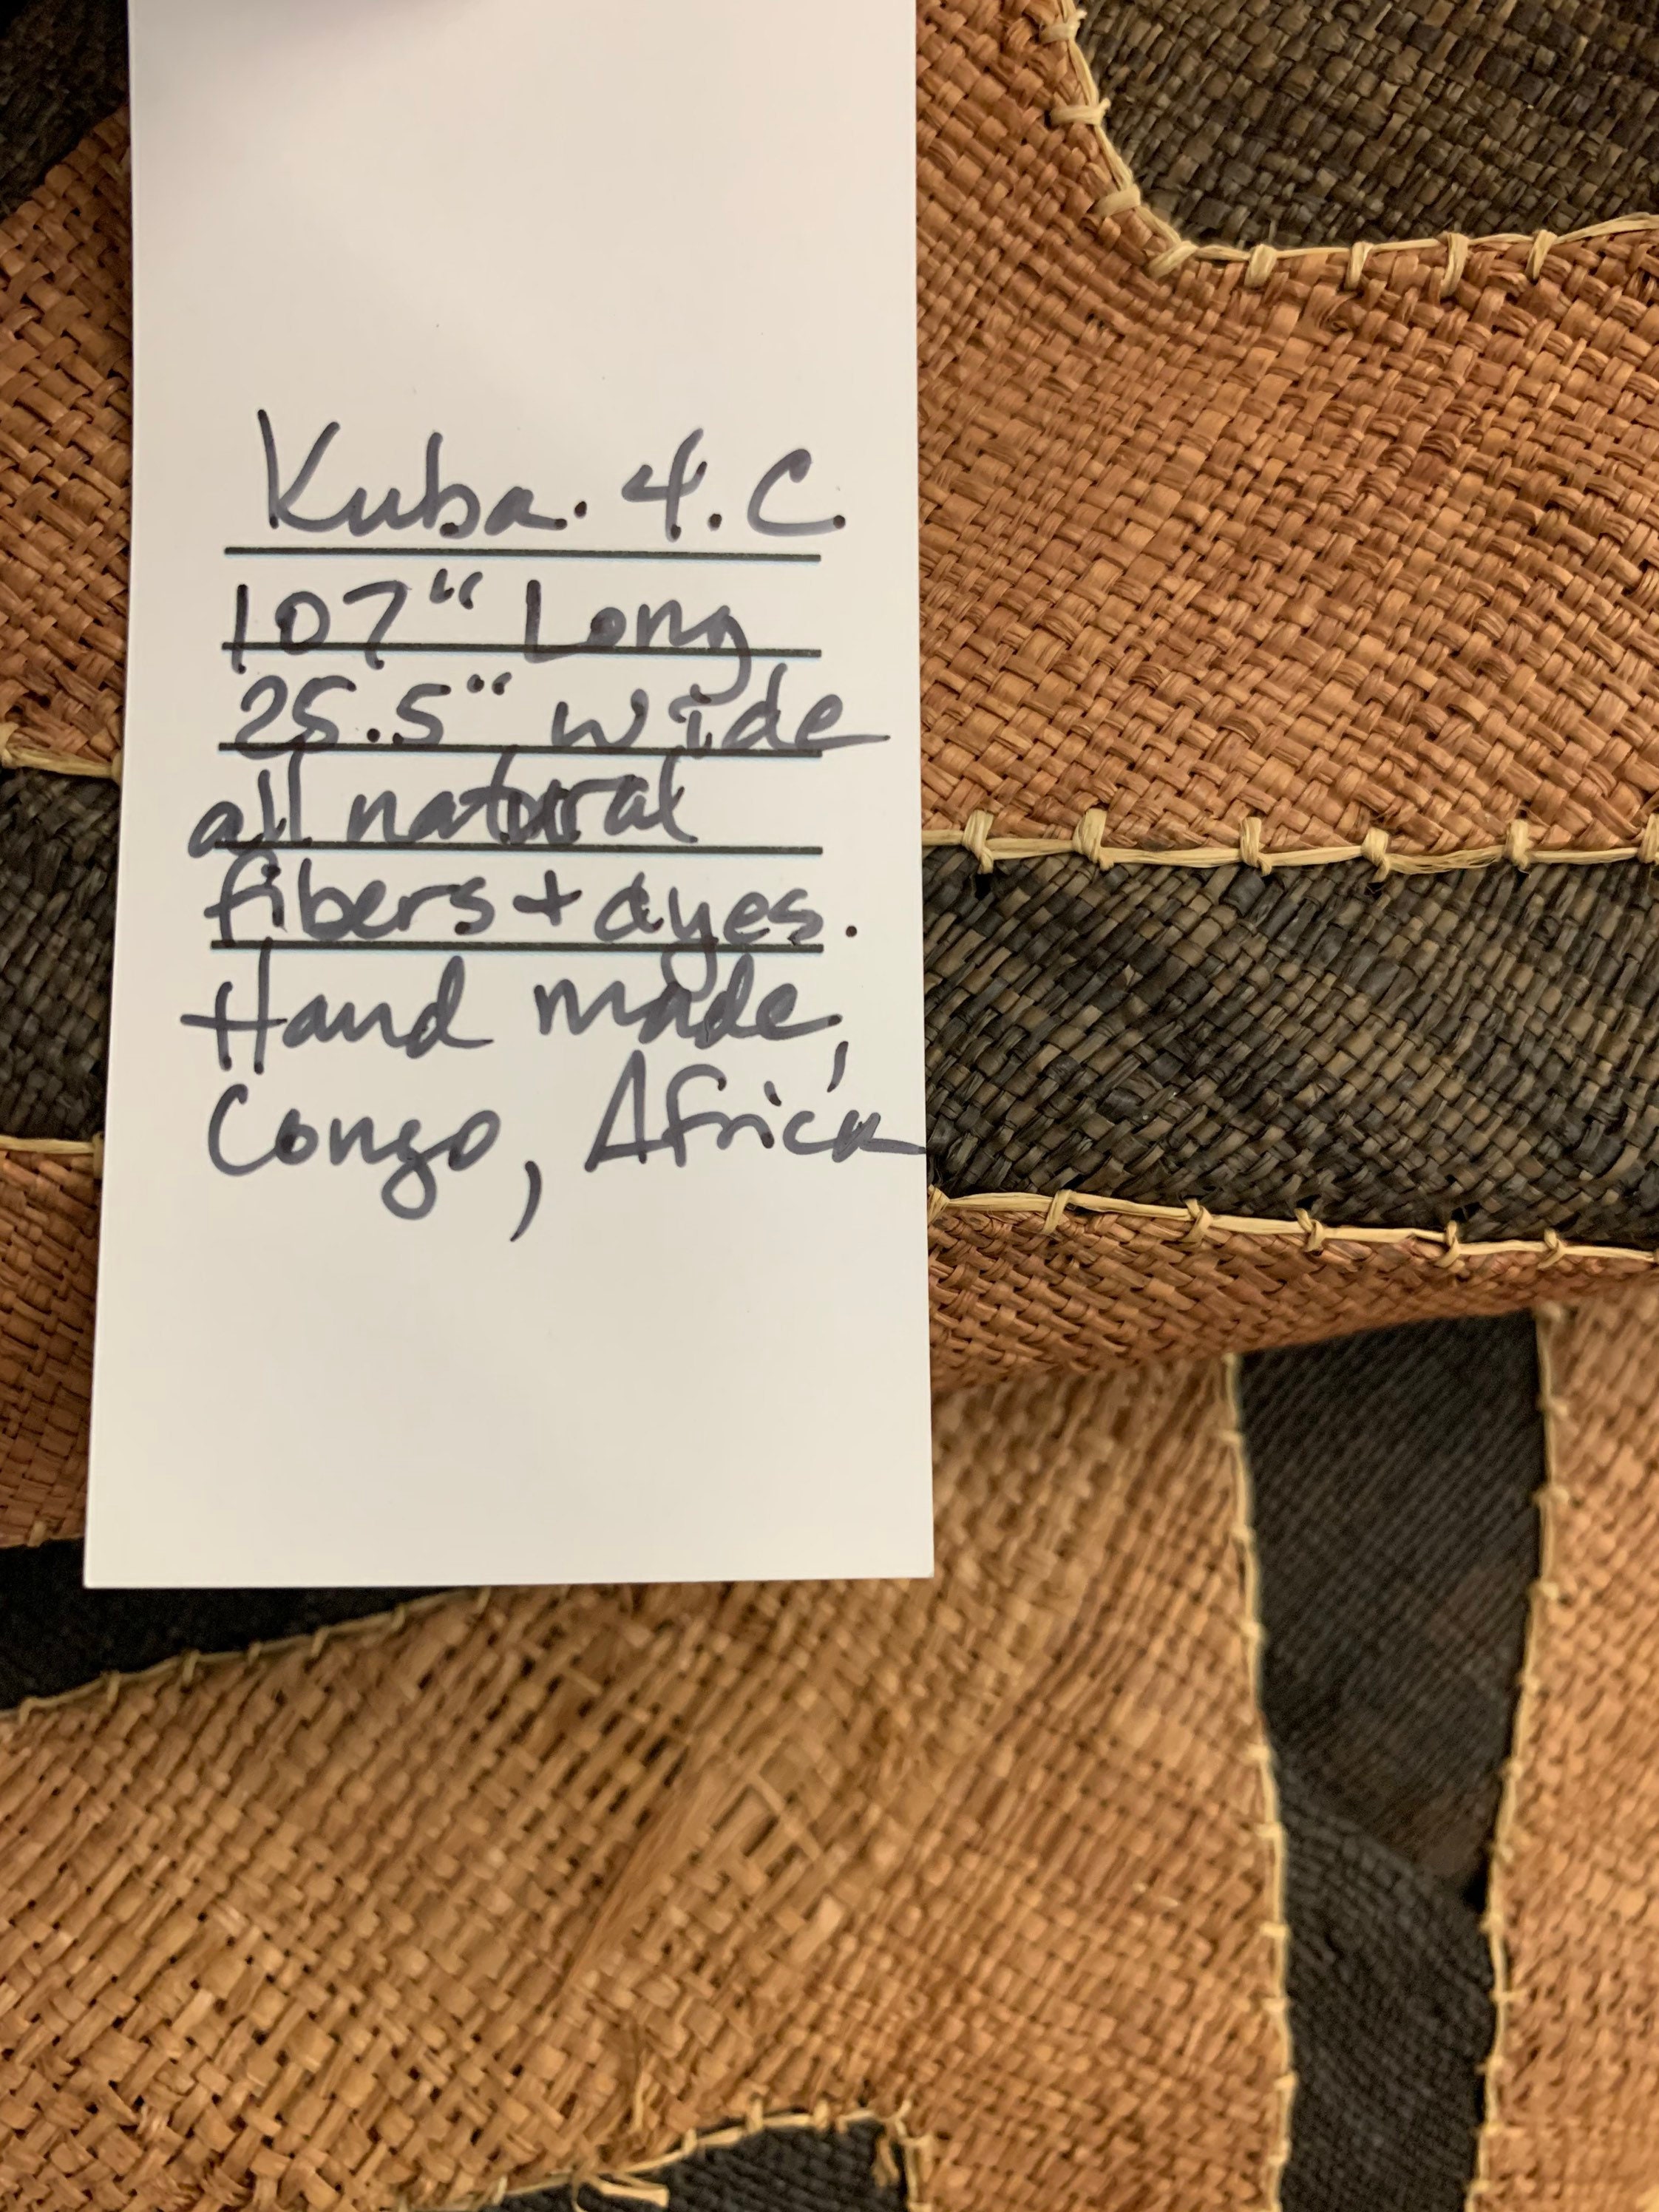 Kuba. 4. C.
107" Long
25.5" wide
all natural
fibers + dyes.
Hand made,
Congo, Africa